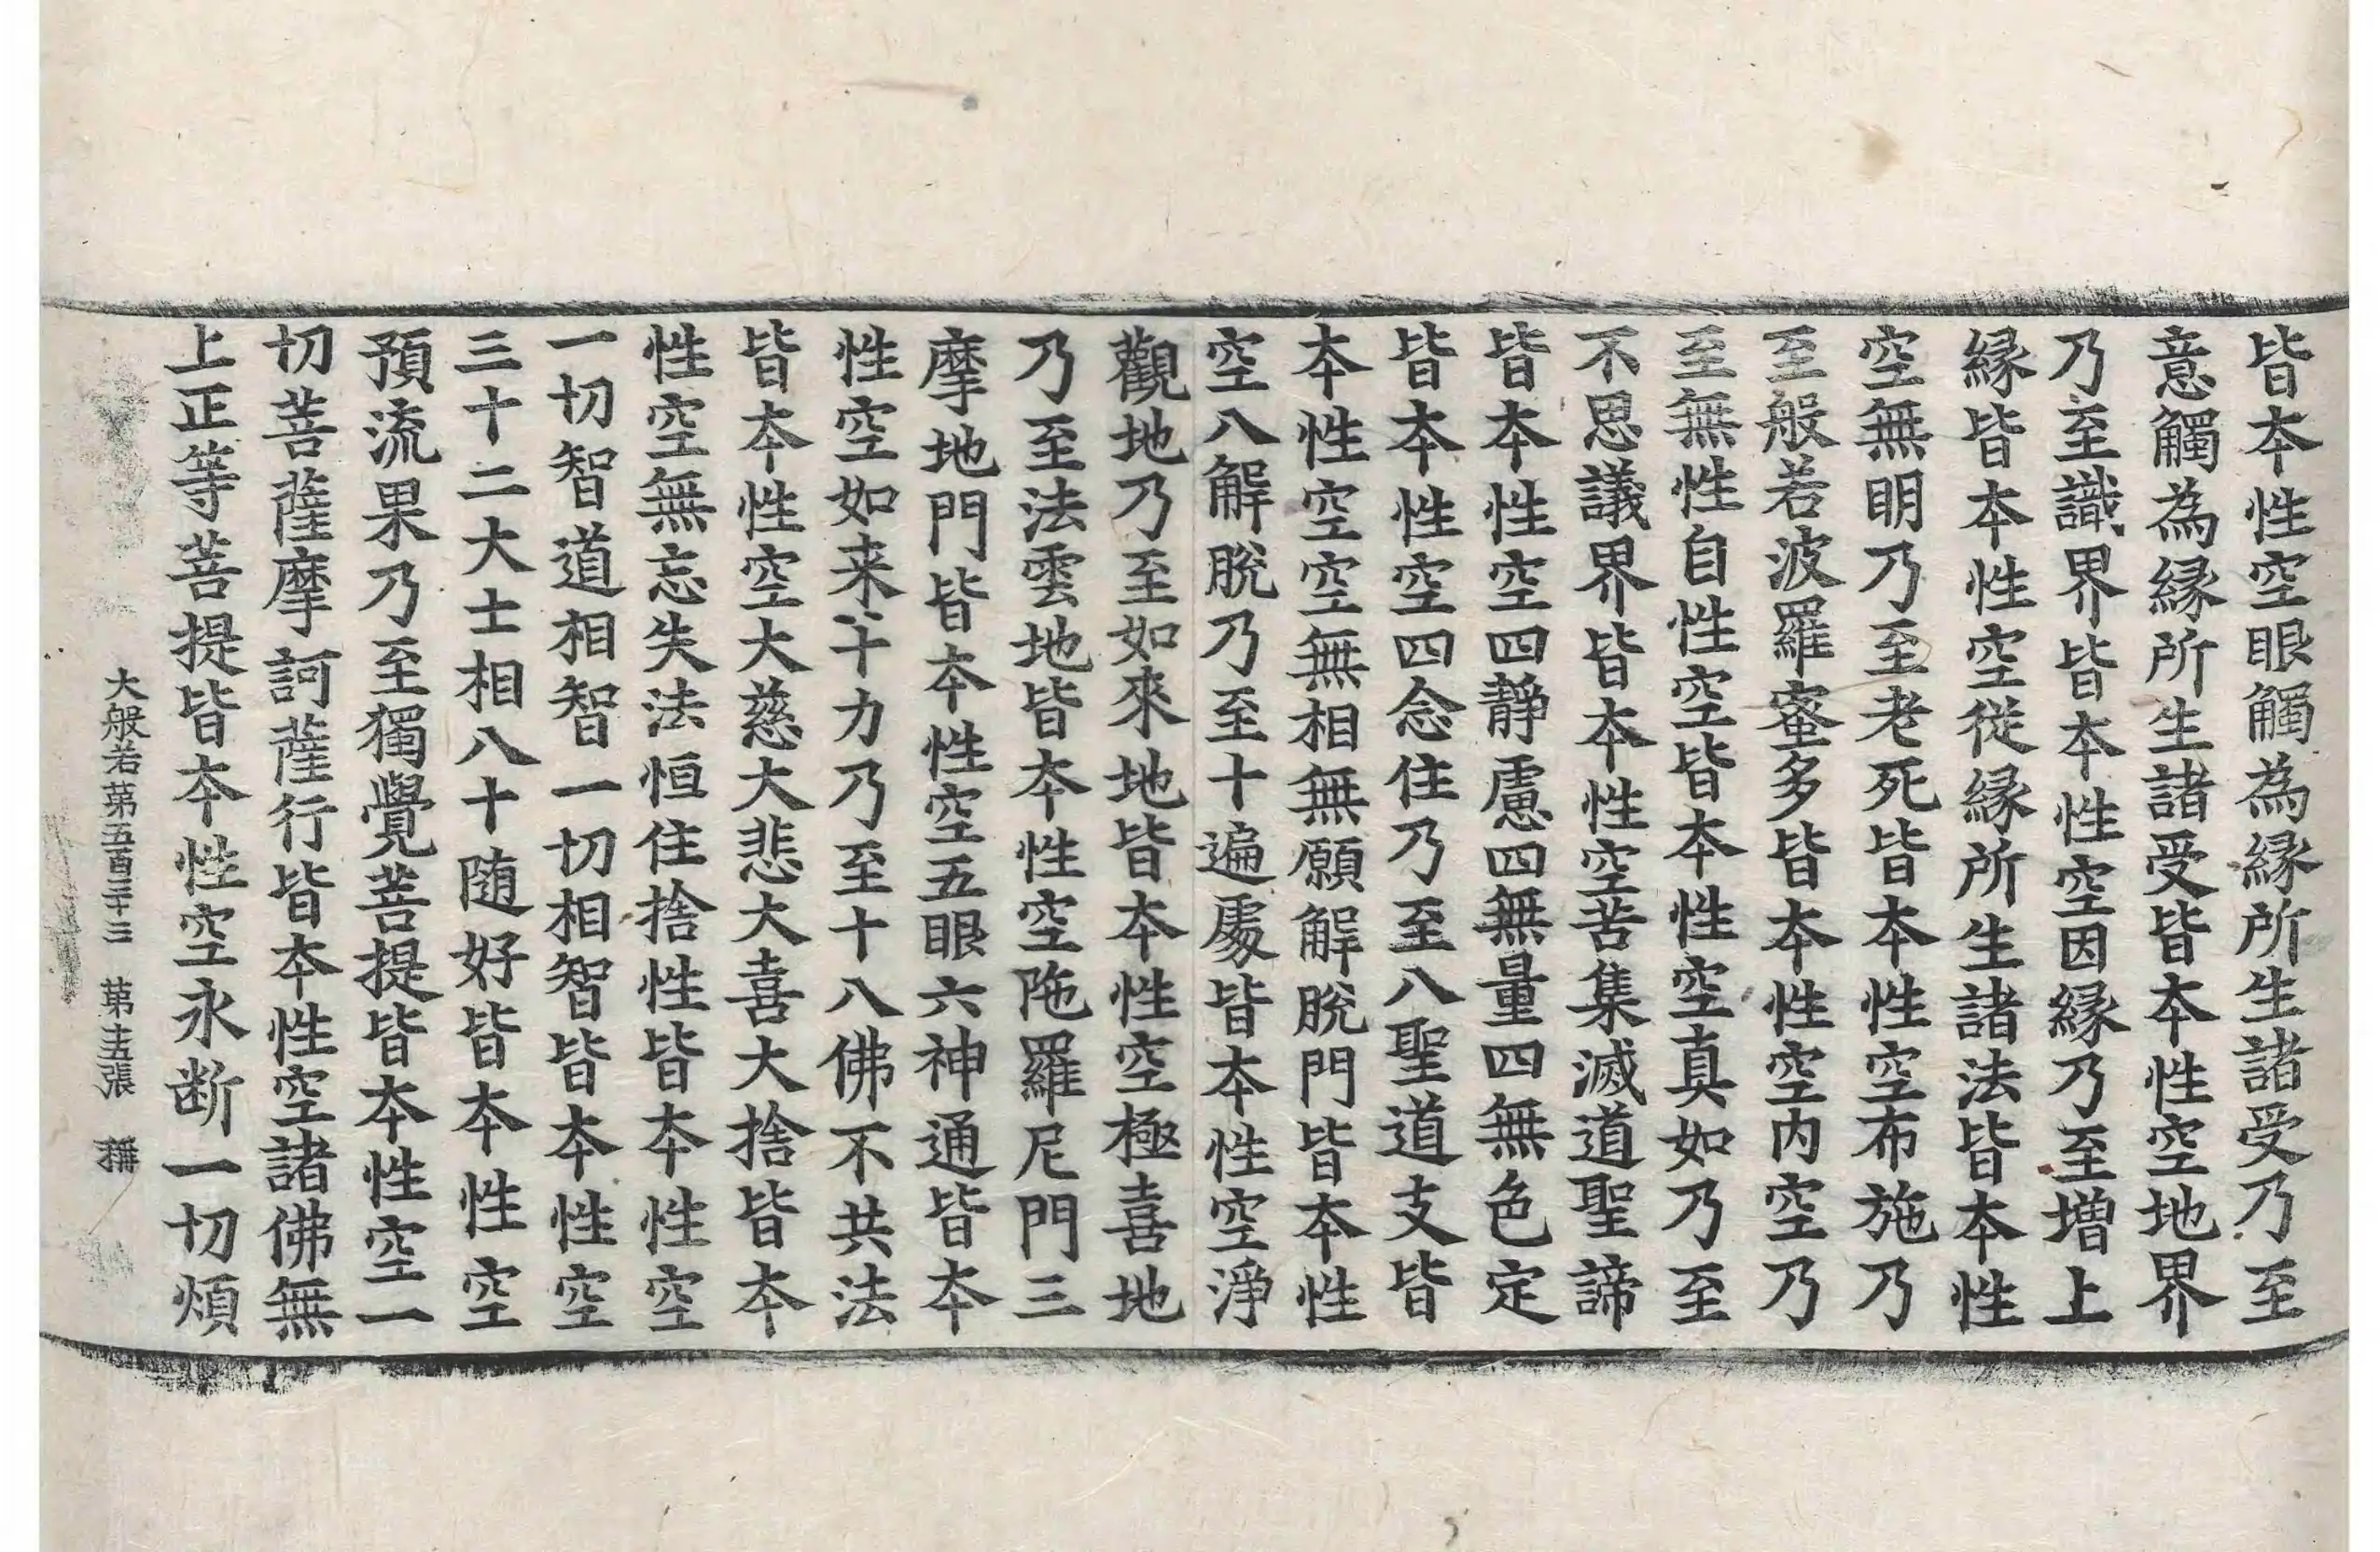 皆本性空眼觸為縁所生諸受乃至
意觸為縁所生諸受皆本性空地界
乃至識界皆本性空因縁乃至增上
縁皆本性空從縁所生諸法皆本性
空無明乃至老死皆本性空布施乃
至般若波羅蜜多皆本性空内空乃
至無性自性空皆本性空真如乃至
不思議界皆本性空苦集滅道聖諦
皆本性空四靜慮四無量四無色定
皆本性空四念住乃至八聖道支皆
本性空空無相無願解脫門皆本性
空八解脫乃至十遍處皆本性空淨
觀地乃至如來地皆本性空極喜地
乃至法雲地皆本性空陁羅尼門三
摩地門皆本性空五眼六神通皆本
性空如来十力乃至十八佛不共法
皆本性空大慈大悲大喜大捨皆本
性空無忘失法恒住捨性皆本性空
一切智道相智一切相智皆本性空
三十二大士相八十随好皆本性空
預流果乃至獨覺菩提皆本性空一
切菩薩摩訶薩行皆本性空諸佛無
上正等菩提皆本性空永断一切煩
大般若第五百二十三　第十五張